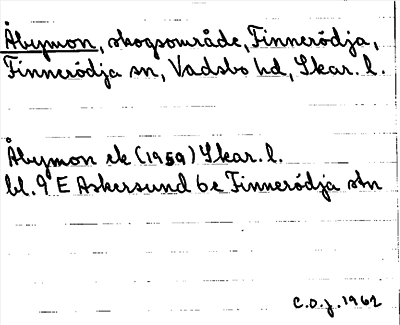 Åbymon, skogsområde, Finnerödja,
Finnerödja sn, Vadsbo hd, Skar. l.
Åbymon ek (1959) Skar. l.
bl. 9 E Askersund 6e Finnerödja stn
C.O.J. 1962